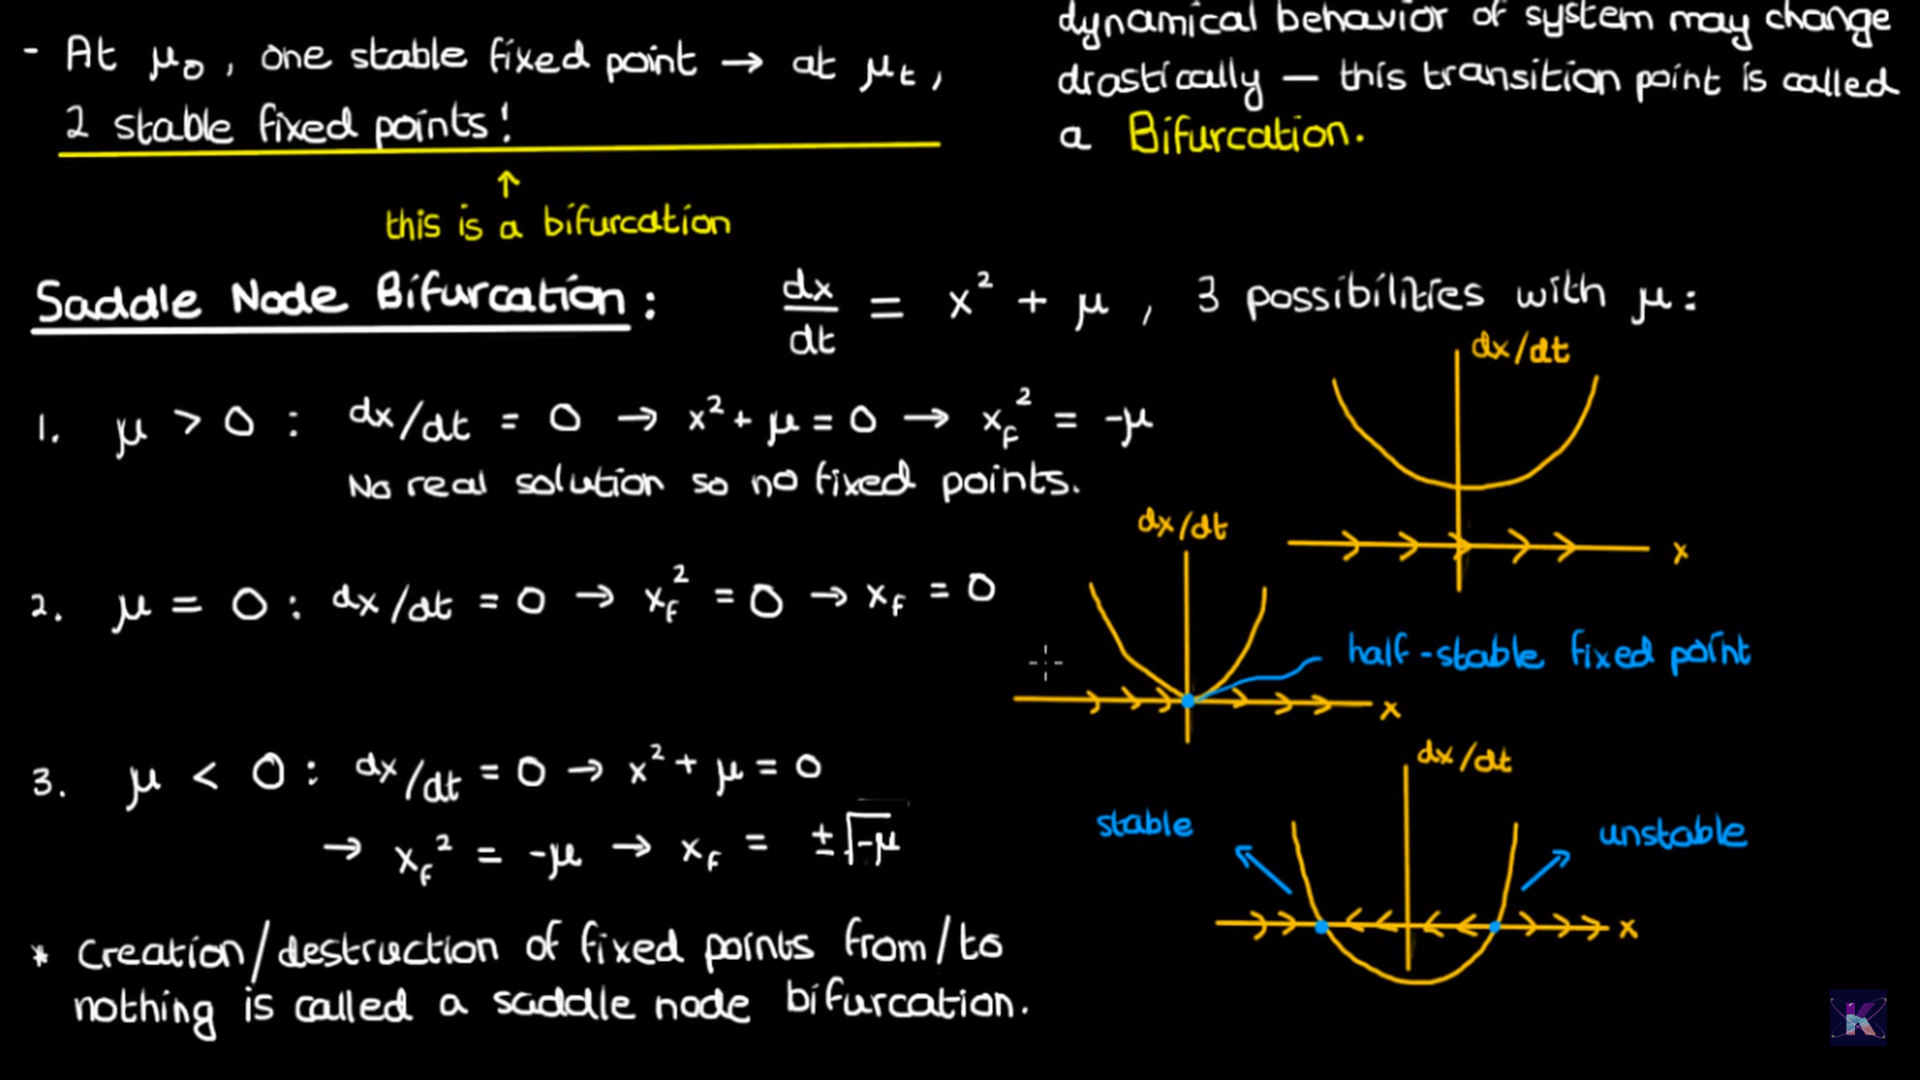 - At μ₀, one stable fixed point → at μt,
2 stable fixed points!
↑
this is a bifurcation
dynamical behavior of system may change
drastically — this transition point is called
a Bifurcation.
Saddle Node Bifurcation: dx/dt = x² + μ, 3 possibilities with μ:
1. μ > 0 : dx/dt = 0 → x² + μ = 0 → x_F² = -μ
No real solution so no fixed points.
dx/dt
x
2. μ = 0 : dx/dt = 0 → x_F² = 0 → x_F = 0
dx/dt
half-stable fixed point
x
3. μ < 0 : dx/dt = 0 → x² + μ = 0
→ x_F² = -μ → x_F = ±√-μ
dx/dt
stable
unstable
x
* Creation/destruction of fixed points from/to
nothing is called a saddle node bifurcation.
K